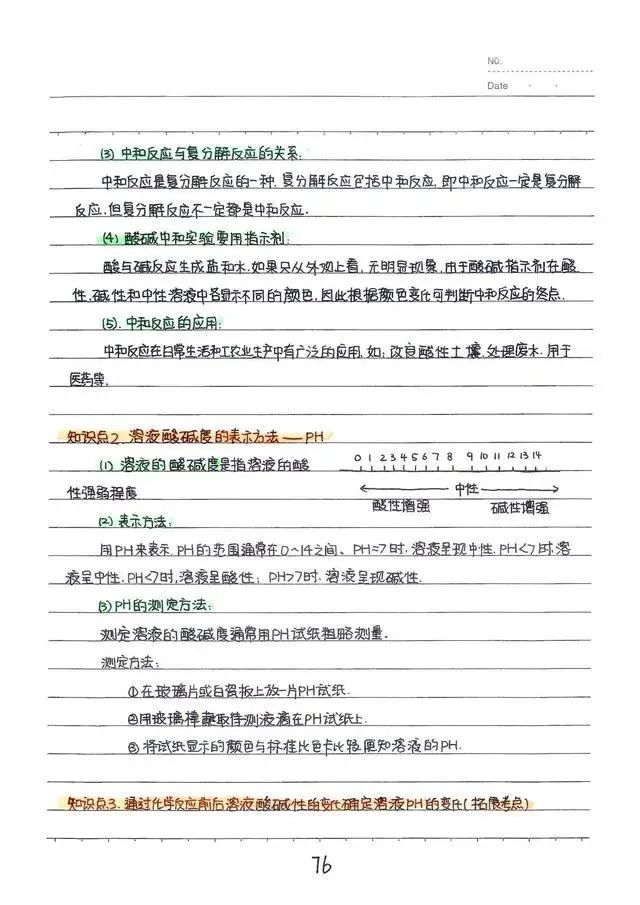 NO.
Date
(3) 中和反应与复分解反应的关系:
中和反应是复分解反应的一种. 复分解反应包括中和反应, 即中和反应一定是复分解
反应, 但复分解反应不一定都是中和反应.
(4) 酸碱中和实验要用指示剂:
酸与碱反应生成盐和水. 如果只从外观上看, 无明显现象, 由于酸碱指示剂在酸
性、碱性和中性溶液中各显示不同的颜色, 因此根据颜色变化可判断中和反应的终点.
(5). 中和反应的应用:
中和反应在日常生活和工农业生产中有广泛的应用. 如: 改良酸性土壤, 处理废水, 用于
医药等.
知识点2. 溶液酸碱度的表示方法——PH
(1) 溶液的酸碱度是指溶液的酸
性强弱程度
0 1 2 3 4 5 6 7 8 9 10 11 12 13 14
中性
酸性增强 碱性增强
(2) 表示方法:
用PH来表示. PH的范围通常在0~14之间、PH=7时, 溶液呈现中性. PH<7时, 溶
液呈中性, PH<7时, 溶液呈酸性; PH>7时, 溶液呈现碱性.
(3) PH的测定方法:
测定溶液的酸碱度通常用PH试纸粗略测量.
测定方法:
①在玻璃片或白瓷板上放一片PH试纸.
②用玻璃棒蘸取待测液滴在PH试纸上.
③ 将试纸显示的颜色与标准比色卡比较便知溶液的PH.
知识点3. 通过化学反应前后溶液酸碱性的变化确定溶液PH的变化(拓展考点)
76